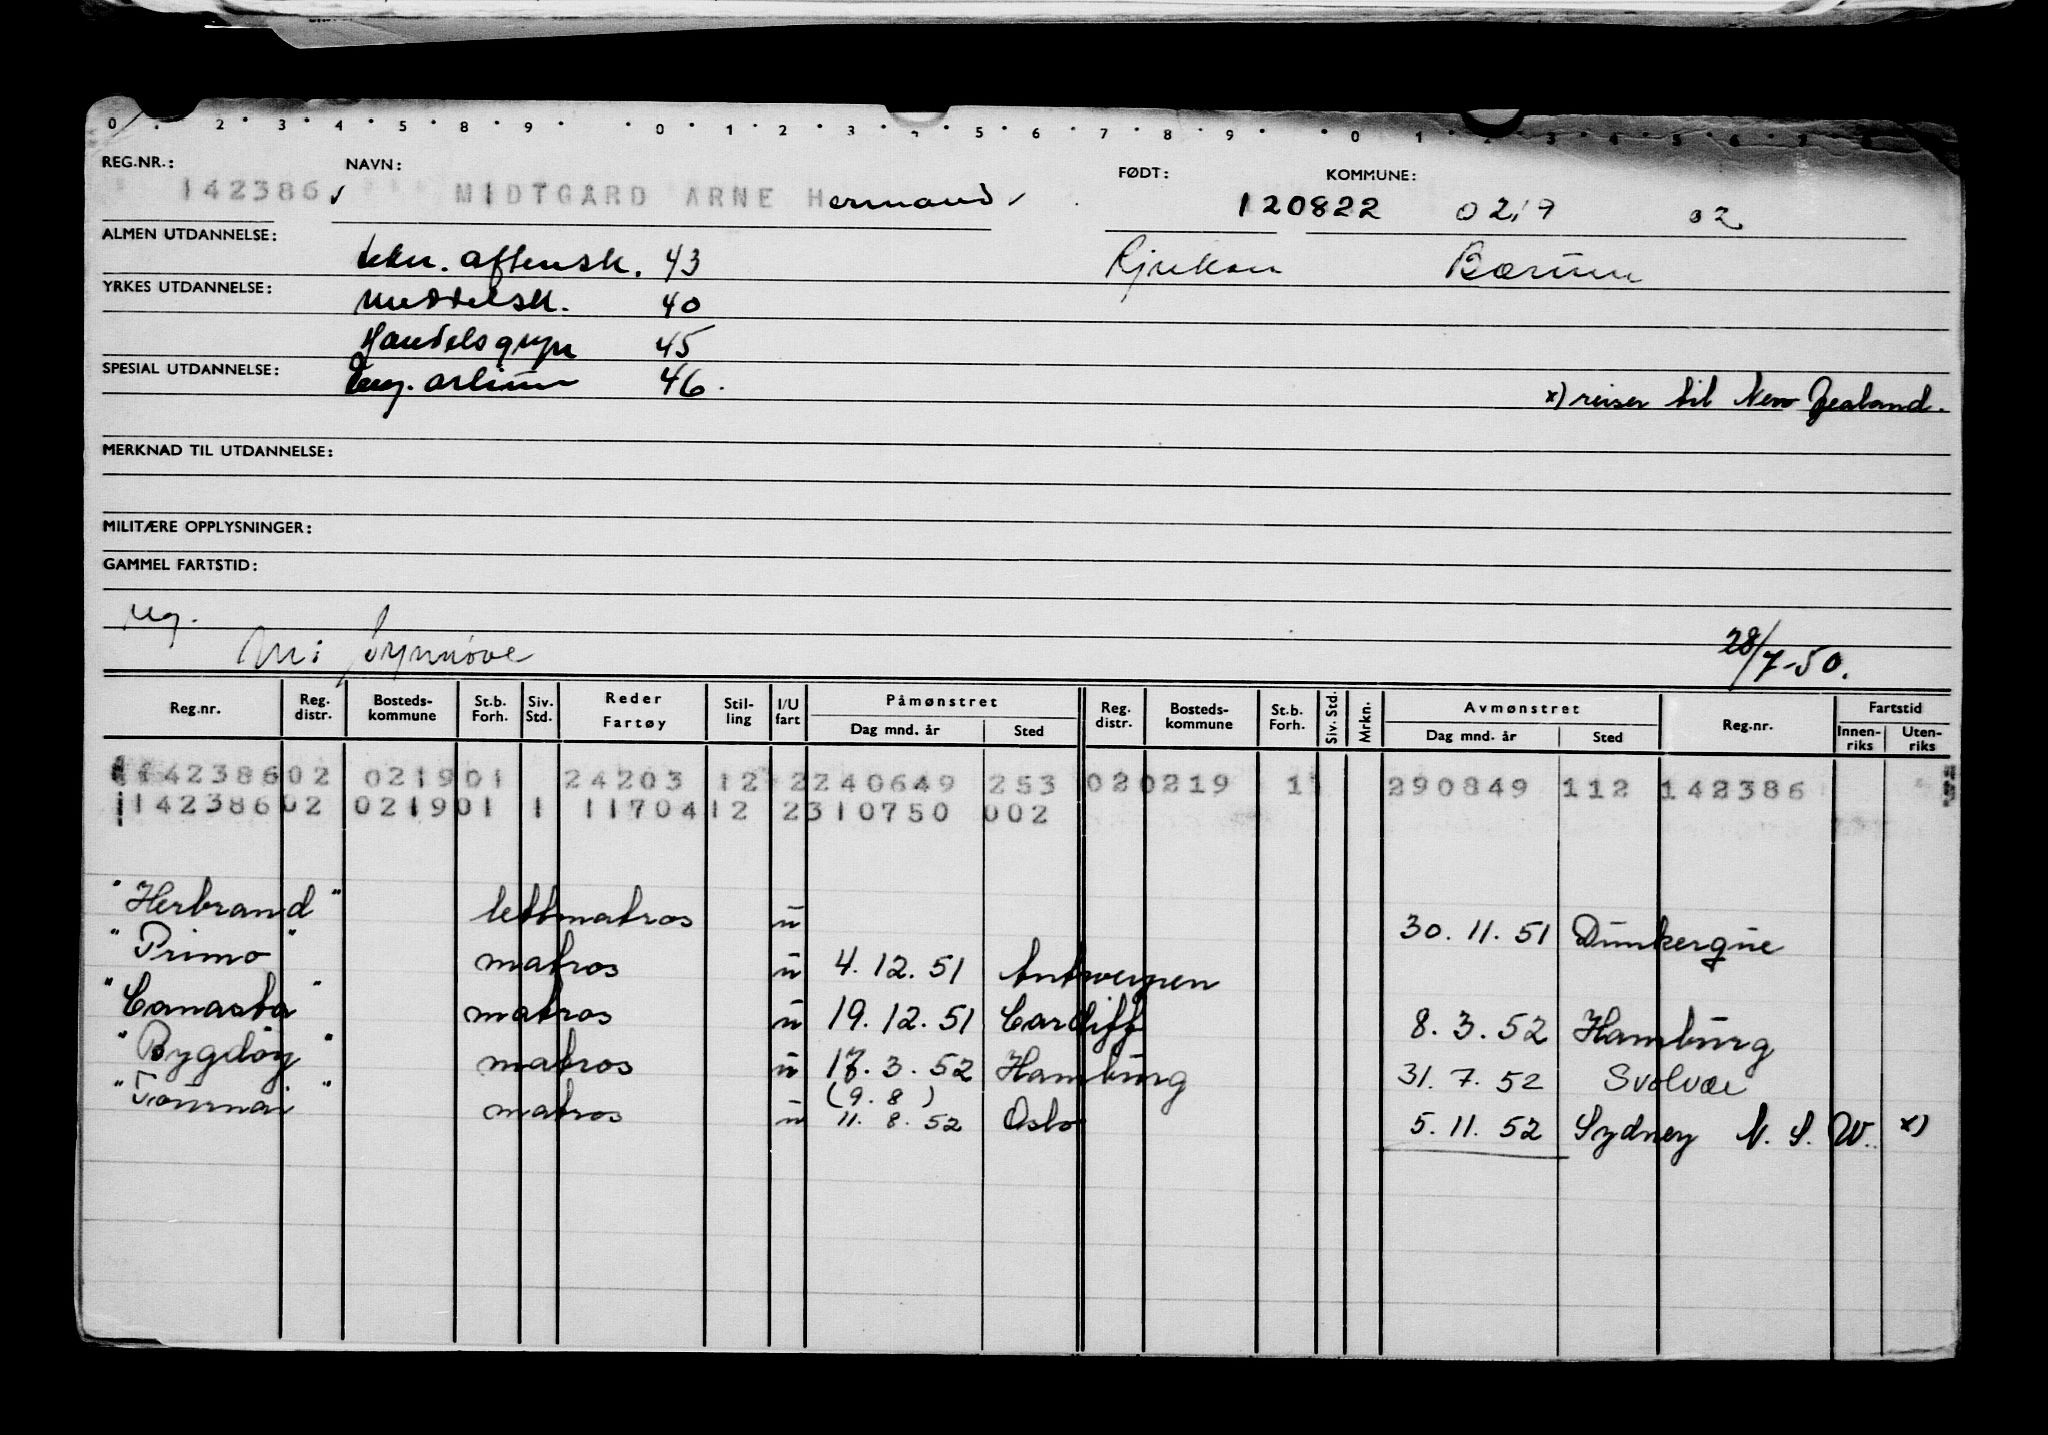 0 2 3 4 5 8 9 0 1 2 3 4 5 6 7 8 9 0 1 2 3 4 5 6 7
REG.NR.: NAVN: FØDT: KOMMUNE:
142386 MIDTGARD ARNE Hermand 120822 0219 02
ALMEN UTDANNELSE: tekn. aftensk. 43 Rjukan Bærum
YRKES UTDANNELSE: middelsk. 40
Handelsgym 45
SPESIAL UTDANNELSE: Eng. artium 46.
x) reiser til New Zealand.
MERKNAD TIL UTDANNELSE:
MILITÆRE OPPLYSNINGER:
GAMMEL FARTSTID:
reg.
M: Synnøve 28/7-50.
Reg.nr. Reg. distr. Bosteds-kommune St.b. Forh. Siv. Std. Reder Fartøy Stil-ling I/U fart Påmønstret Dag mnd. år Sted Reg. distr. Bosteds-kommune St.b. Forh. Siv. Std. Mrkn. Avmønstret Dag mnd. år Sted Reg.nr. Fartstid Innen-riks Uten-riks
142386 02 0219 01 24203 12 2 240649 253 02 0219 1 290849 112 142386
142386 02 0219 01 1 11704 12 2 310750 002
"Herbrand" lettmatros u 30. 11. 51 Dunkerque
"Primo" matros u 4. 12. 51 Antwerpen
"Canasta" matros u 19. 12. 51 Cardiff 8. 3. 52 Hamburg
"Bygdøy" matros u 17. 3. 52 Hamburg 31. 7. 52 Svolvær
(9. 8)
"Tournai" matros u 11. 8. 52 Oslo 5. 11. 52 Sydney N. S. W. x)